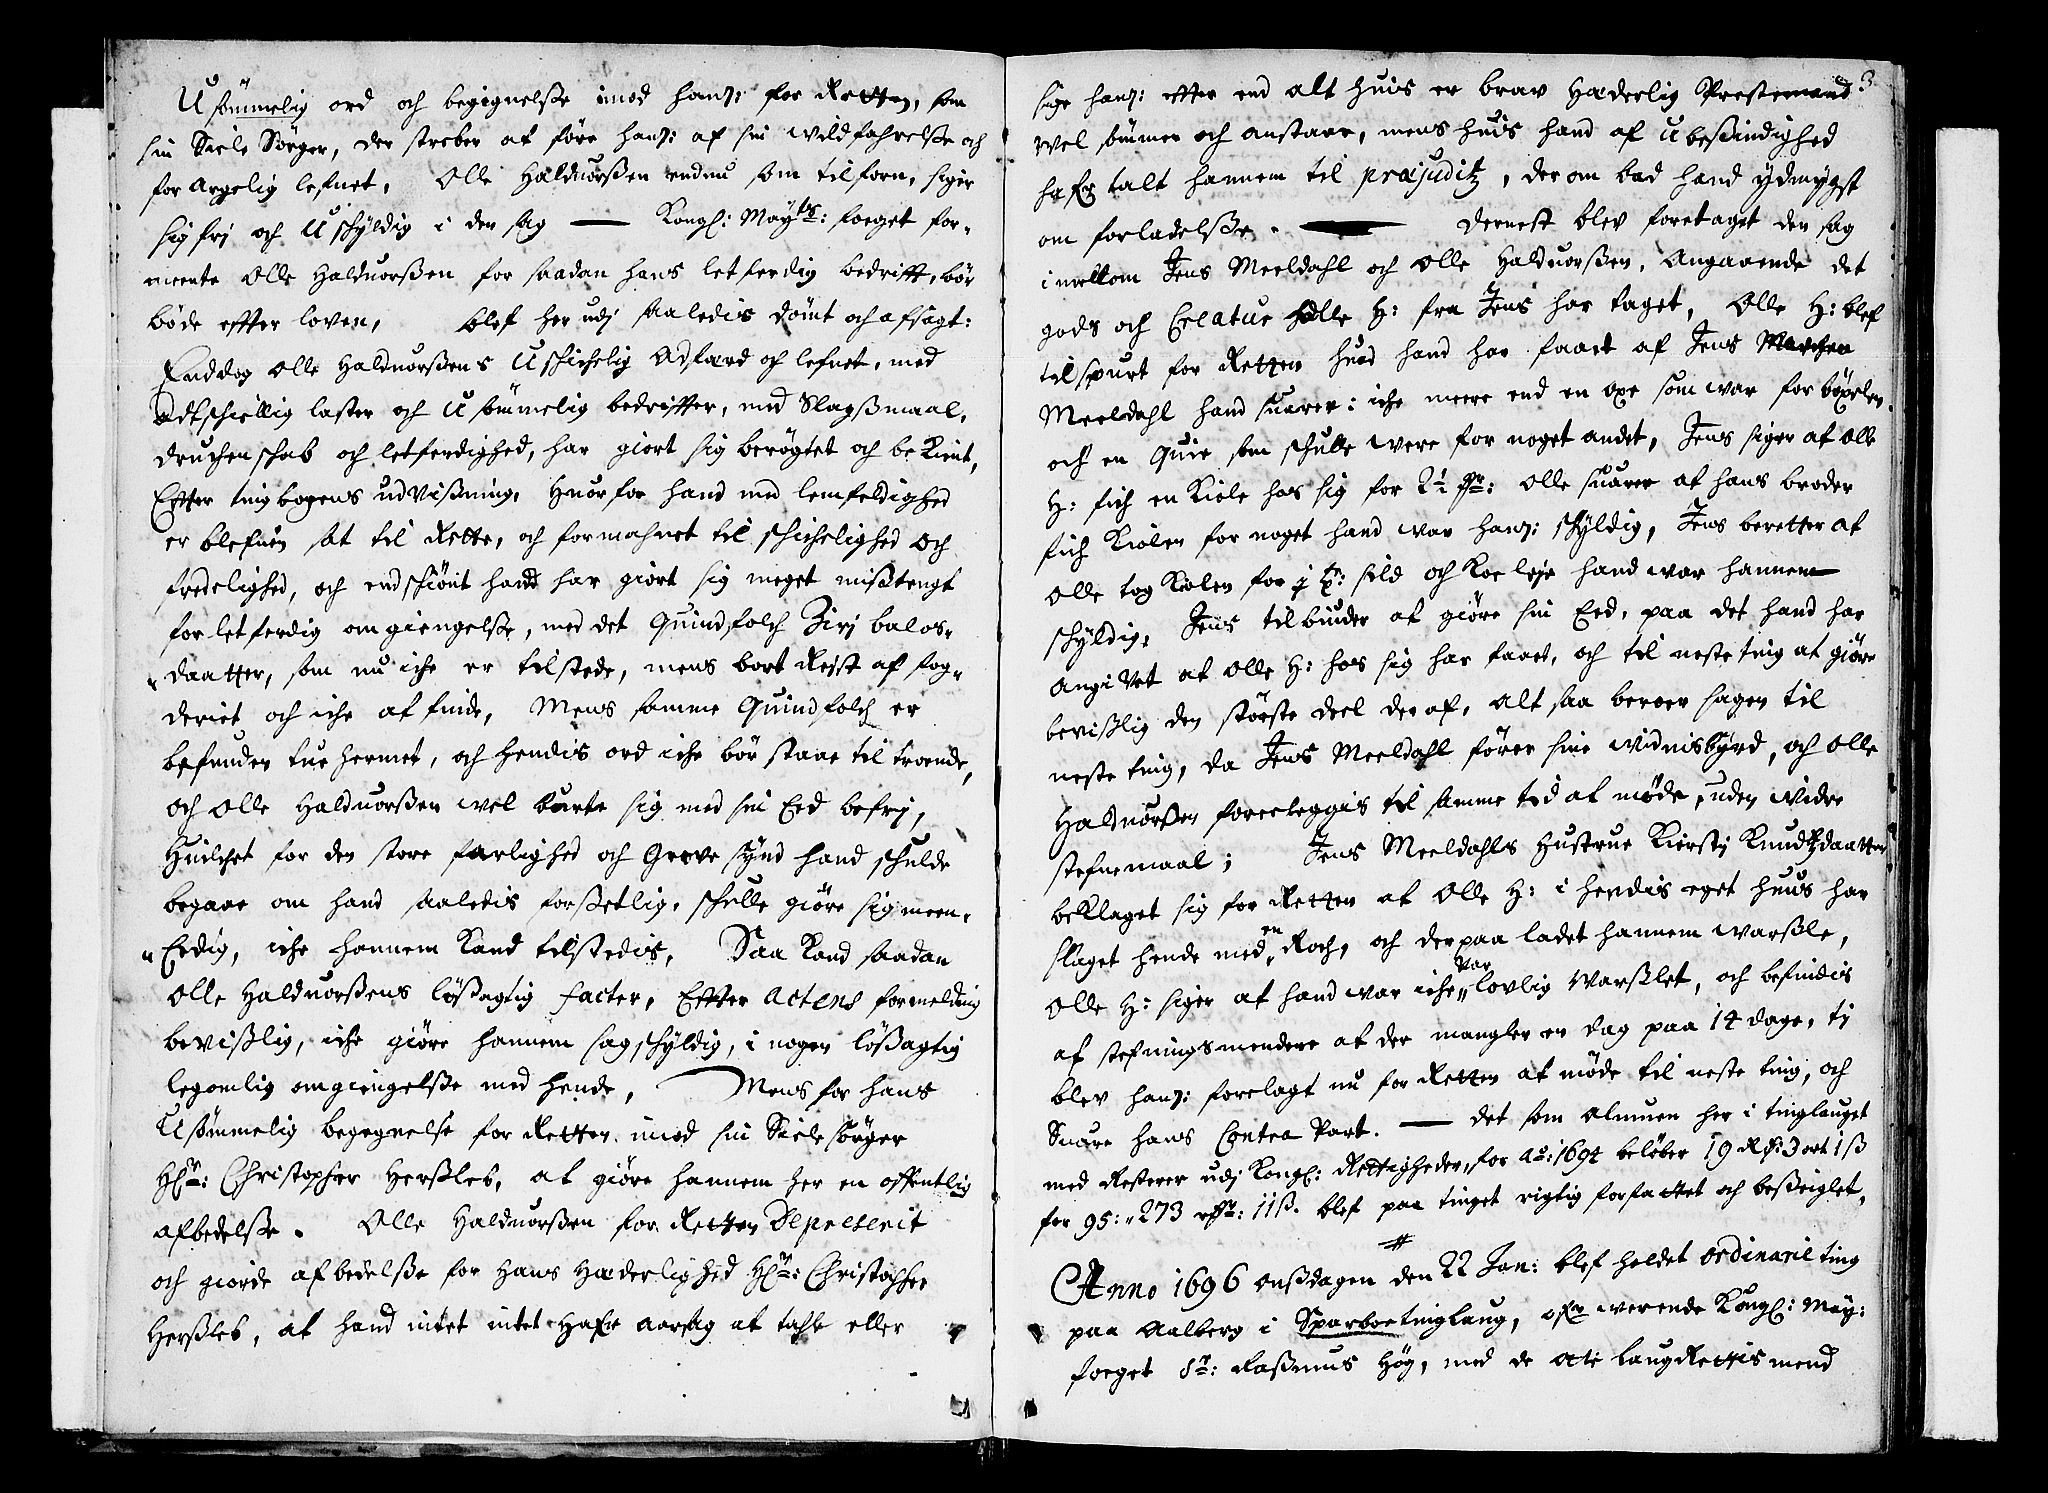 Usömmelig ord och begignelsse imod hans: for Retten, som
sin Siele Sörger, der streber at före hans: af sin wildfahrelsse och
forargelig lefnet, Olle Haldvorssen endnu som tilforn, siger
sig frj och Uschyldig i den sag — Kongl: Mayts: foeget for-
meente Olle Haldvorssen for saadan hans letferdig bedrifft, bör
böde effter loven, blef her udj saaledis dömt och afsagt:
Enddog Olle Haldvorssens Uschichelig Adfærd och lefnet, med
adtschiellig laster och Usömmelig bedriffter, med Slagssmaal,
druchenschab och letferdighed, har giort sig berögtet och bekient,
Effter tingbogens udvissning, Hvorfor hand med lemfeldighed
er blefven sat til Rette, och formahnet til schichelighed och
fredelighed, och endschiönt hand har giort sig meget misstengt
for letferdig omgiengelsse, med det Quindfolch Zirj balos-
daatter, som nu iche er tilstede, mens bort Rejst af fog-
deriet och iche at finde, Mens samme Quindfolch er
befunden tue hermet, och hendis ord iche bör staae til troende,
och Olle Haldvorssen wel burte sig med sin Eed befrj,
Huilchet for den store farlighed och Grove synd hand schulde
begaae om hand saaledis forssetlig, schulle giöre sig meen-
Eedig, iche hannem Kand tilstedis, Saa Kand saadan
Olle Haldvorssens lössagtig facter, Effter Actens formelding
bevisslig, iche giöre hannem sagschyldig, i nogen lössagtig
legomlig omgiengelsse med hende, Mens for hans
Usömmelig begegnelse for Retten imod sin Siele sörger
Hr: Christopher Herssleb, at giöre hannem her en offentlig
afbedelsse. Olle Haldvorssen for Retten Deprecerit
och giorde afbedelsse for Hans Hæderlighed Hr: Christopher
Herssleb, at hand intet intet Hafr aarsag at tahle eller
3
sige hans: efter end alt huis en brav Hæderlig Prestemand
wel sömmer och anstaar, mens huis hand af Ubessindighed
hafr talt hannem til præjuditz, derom bad hand ydmygst
om forladelsse. — Dernest blev foretaget den sag
imellom Jens Meeldahl och Olle Haldvorssen, Angaaende det
gods och Creatur Olle H: fra Jens har taget, Olle H: blef
tilspurt for Retten hvad hand har faaet af Jens
Meeldahl hand suarer: iche meere end en oxe som war for böxelen
och en Quie som schulle were for noget andet, Jens siger at Olle
H: fich en Kiole hos sig for 2½ : Olle suarer at hans broder
fich Kiolen for noget hand war hans: schyldig, Jens beretter at
Olle tog Kiolen for j t: sild och Koeleje hand war hannem
schyldig, Jens tilbinder at giöre sin Eed, paa det hand har
angivet at Olle H: hos sig har faaet, och til neste ting at giöre
bevisslig den störste deel der af, alt saa beroer sagen til
neste ting, da Jens Meeldahl förer sine widnisbyrd, och Olle
Haldvorssen foreleggis til samme tid at möde, uden widre
stefnemaal; Jens Meeldahls Hustrue Kierstj Knudtzdaatter
beklaget sig for Retten at Olle H: i hendis eget huus har
slaget hende med en Roch, och derpaa ladet hannem warssle,
Olle H: siger at hand war iche var lovlig warsslet, och befindis
af stefningsmendene at der mangler en dag paa 14 dage, tj
blev hans: forelagt nu for Retten at möde til neste ting, och
Suare hans Contra Part. — Det som almuen her i tinglauget
med Resterer udj Kongl: Rettigheder, for ao: 1694 belöber 19 Rd: 3 ort 1 ß
for 95: 273 rdr: 11 ß. blef paa tinget rigtig forfattet och besseiglet,
Anno 1696 onssdagen den 22 Jan: blef holdet ordinarie ting
paa Aalberg i Sparboe tinglaug, ofr werende Kongl: May:
foeget Sr: Rassmus Hög, med de otte laugRettismend